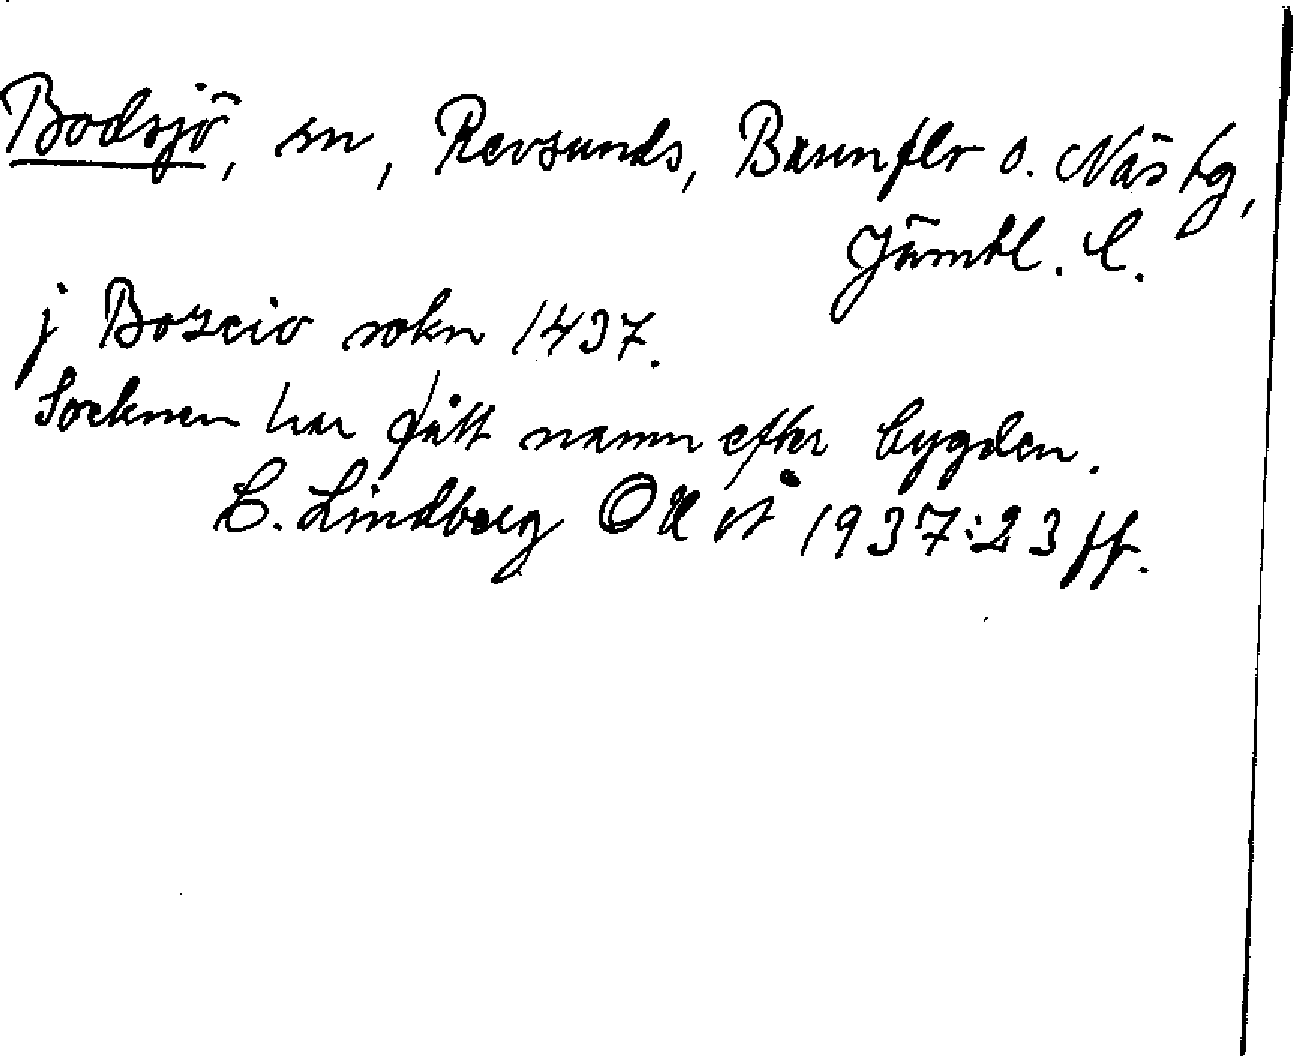 Bodsjö, sn, Revsunds, Brunflo o. Näs tg,
Jämtl. l.
j Bozcio sokn 1437.
Socknen har fått namn efter bygden.
C. Lindberg OUÅ 1937:23 ff.